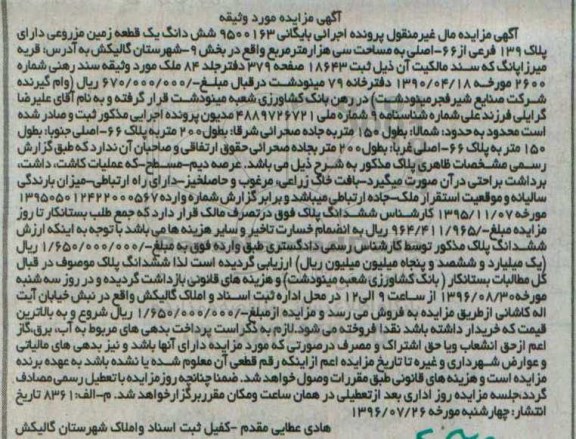 آگهی مزایده مورد وثیقه
آگهی مزایده مال غیرمنقول پرونده اجرائی بایگانی ۹۵۰۰۱۶۳ شش دانگ یک قطعه زمین مزروعی دارای
پلاک ۱۳۹ فرعی از۶۶-اصلی به مساحت سی هزارمترمربع واقع در بخش ۹-شهرستان گالیکش به آدرس: قریه
میرزاپانگ که سند مالکیت آن ذیل ثبت ۱۸۶۴۳ صفحه ۳۷۹ دفترجلد ۸۴ ملک مورد وثیقه سند رهنی شماره
۲۶۰۰ مورخه ۱۳۹۰/۰۴/۱۸ دفترخانه ۷۹ مینودشت درقبال مبلغ-/۶۷۰/۰۰۰/۰۰۰ ریال (وام گیرنده
شرکت صنایع شیرفجرمینودشت) در رهن بانک کشاورزی شعبه مینودشت قرار گرفته و به نام آقای علیرضا
گرایلی فرزند علی شماره شناسنامه ۹ شماره ملی ۴۸۸۹۷۲۶۷۲۱ مدیون پرونده اجرایی مذکور ثبت و صادر شده
است محدود به حدود: شمالا: بطول ۱۵۰ متربه جاده صحرائی شرقا: بطول ۲۰۰ متربه پلاک ۶۶-اصلی جنوبا: بطول
۱۵۰ متر به پلاک ۶۶-اصلی غربا: بطول ۲۰۰ متر بجاده صحرائی حقوق ارتفاقی و صاحبان آن ندارد که طبق گزارش
رسمی مشخصات ظاهری پلاک مذکور به شرح ذیل می باشد. عرصه دیم-مسطح-که عملیات کاشت، داشت،
برداشت براحتی درآن صورت میگیرد-بافت خاک زراعی، مرغوب و حاصلخیز-دارای راه ارتباطی-میزان بارندگی
سالیانه و موقعیت استقرار ملک-جاده ارتباطی میباشد و برابر گزارش شماره وارده ۱۳۹۵۰۵۰۱۲۴۲۲۰۰۰۵۶۷
مورخه ۱۳۹۵/۱۱/۰۷ کارشناس ششدانگ پلاک فوق درتصرف مالک قرار دارد که جمع طلب بستانکار تا روز
مزایده مبلغ-/۹۶۴/۴۱۱/۹۶۵ ریال به انضمام خسارت تاخیر و سایر هزینه ها می باشد با توجه به اینکه ارزش
ششدانگ پلاک مذکور توسط کارشناس رسمی دادگستری طبق وارده فوق به مبلغ-/۱/۶۵۰/۰۰۰/۰۰۰ ریال
(یک میلیارد و ششصد و پنجاه میلیون میلیون ریال) ارزیابی گردیده است لذا ششدانگ پلاک موصوف در قبال
کل مطالبات بستانکار ( بانک کشاورزی شعبه مینودشت) و هزینه های قانونی بازداشت گردیده و در روز سه شنبه
مورخه ۱۳۹۶/۰۸/۳۰ از ساعت ۹ الی۱۲ در محل اداره ثبت اسناد و املاک گالیکش واقع در نبش خیابان آیت
اله کاشانی ازطریق مزایده به فروش می رسد و مزایده ازمبلغ-/۱/۶۵۰/۰۰۰/۰۰۰ ریال شروع و به بالاترین
قیمت که خریدار داشته باشد نقدا فروخته می شود. لازم به ذکر است پرداخت بدهی های مربوط به آب، برق،گاز
اعم ازحق انشعاب ویا حق اشتراک و مصرف درصورتی که مورد مزایده دارای آنها باشد و نیز بدهی های مالیاتی
و عوارض شهرداری و غیره تا تاریخ مزایده اعم ازاینکه رقم قطعی آن معلوم شده یا نشده باشد به عهده برنده
مزایده است و هزینه های قانونی طبق مقررات وصول خواهد شد. ضمنا چنانچه روزمزایده با تعطیل رسمی مصادف
گردد،جلسه مزایده روز اداری بعد ازتعطیلی در همان ساعت ومکان مقرربرگزارخواهد شد. م-الف: ۸۳۶۱ تاریخ
انتشار: چهارشنبه مورخه ۱۳۹۶/۰۷/۲۶
هادی عطایی مقدم -کفیل ثبت اسناد واملاک شهرستان گالیکش